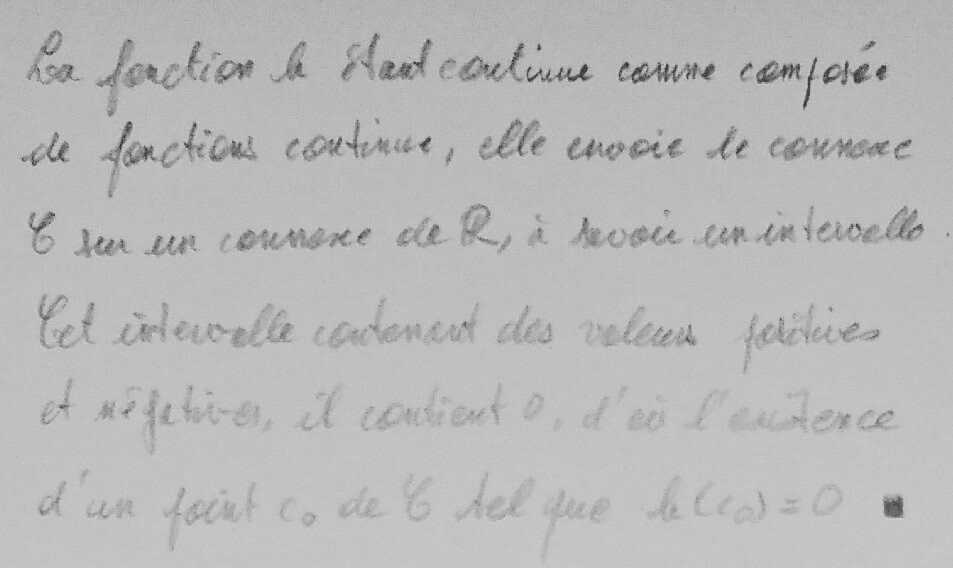 La fonction h étant continue comme composée
de fonctions continue, elle envoie le connexe
C sur un connexe de R, à savoir un intervalle.
Cet intervalle contenant des valeurs positives
et négatives, il contient 0, d'où l'existence
d'un point c₀ de C tel que h(c₀) = 0 ■